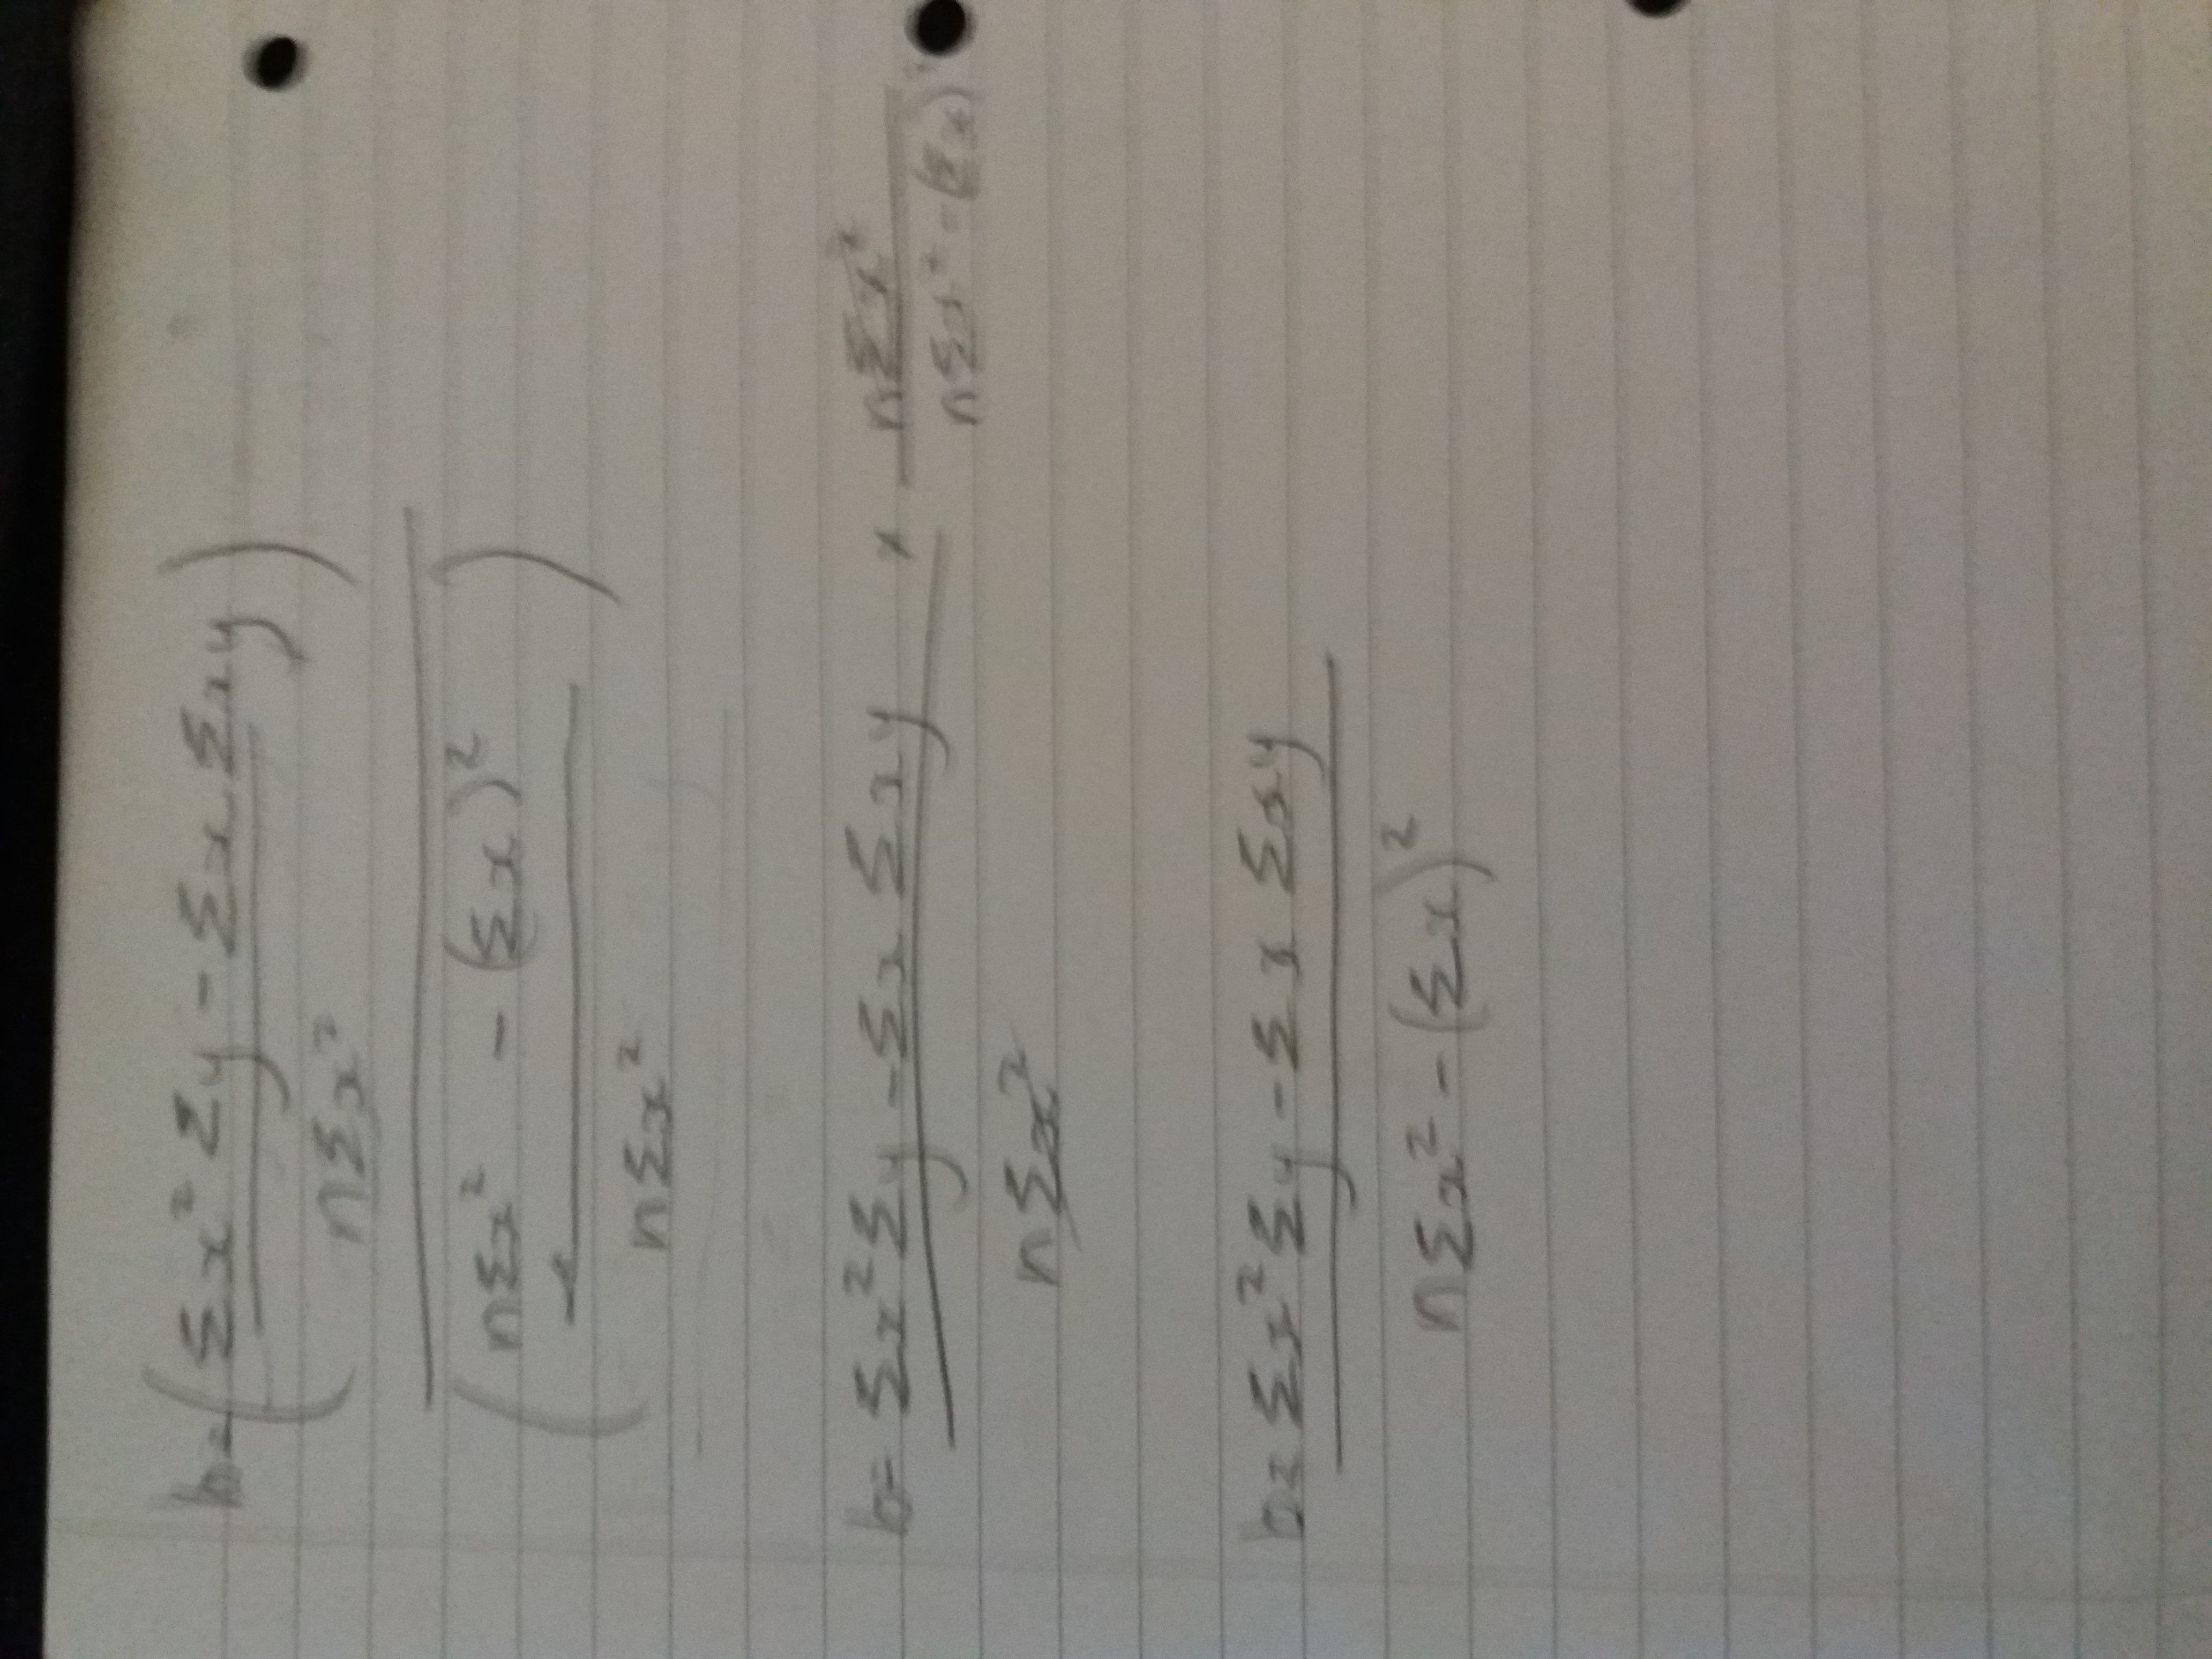 b = ( Σx² Σy - Σx Σxy )
nΣx²
( nΣx² - (Σx)² )
nΣx²
b = Σx² Σy - Σx Σxy × nΣx²
nΣx² nΣx² - (Σx)²
b = Σx² Σy - Σx Σxy
nΣx² - (Σx)²